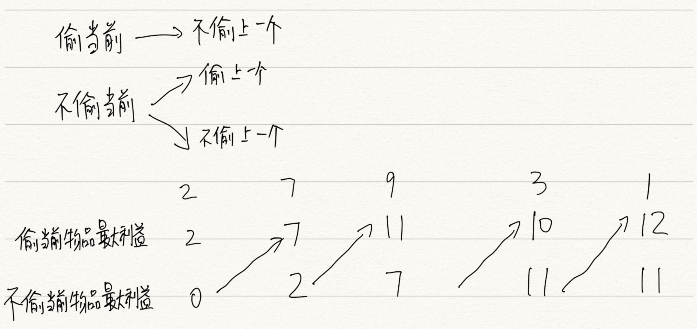 偷当前 → 不偷上一个
偷上一个
不偷当前
不偷上一个
2 7 9 3 1
偷当前物品最大利益 2 7 11 10 12
不偷当前物品最大利益 0 2 7 11 11